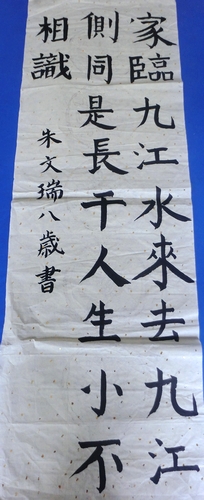 家臨九江水來去九江
側同是長干人生小不
相識
朱文瑞八歲書